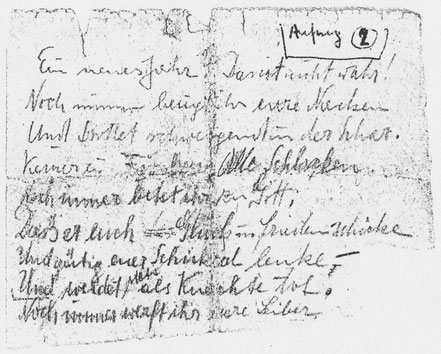 Aufruf (2)
Ein neues Jahr! Das ist nicht wahr!
Noch immer beugt ihr eure Nacken
Und trottet schweigend in der Schar.
Keiner Alle
Noch immer betet ihr Gott,
Dass er euch Glück u. Frieden schicke
Und gütig euer Schicksal lenke –
Und werdet als Knechte tot.
Noch immer werft ihr eure Leiber